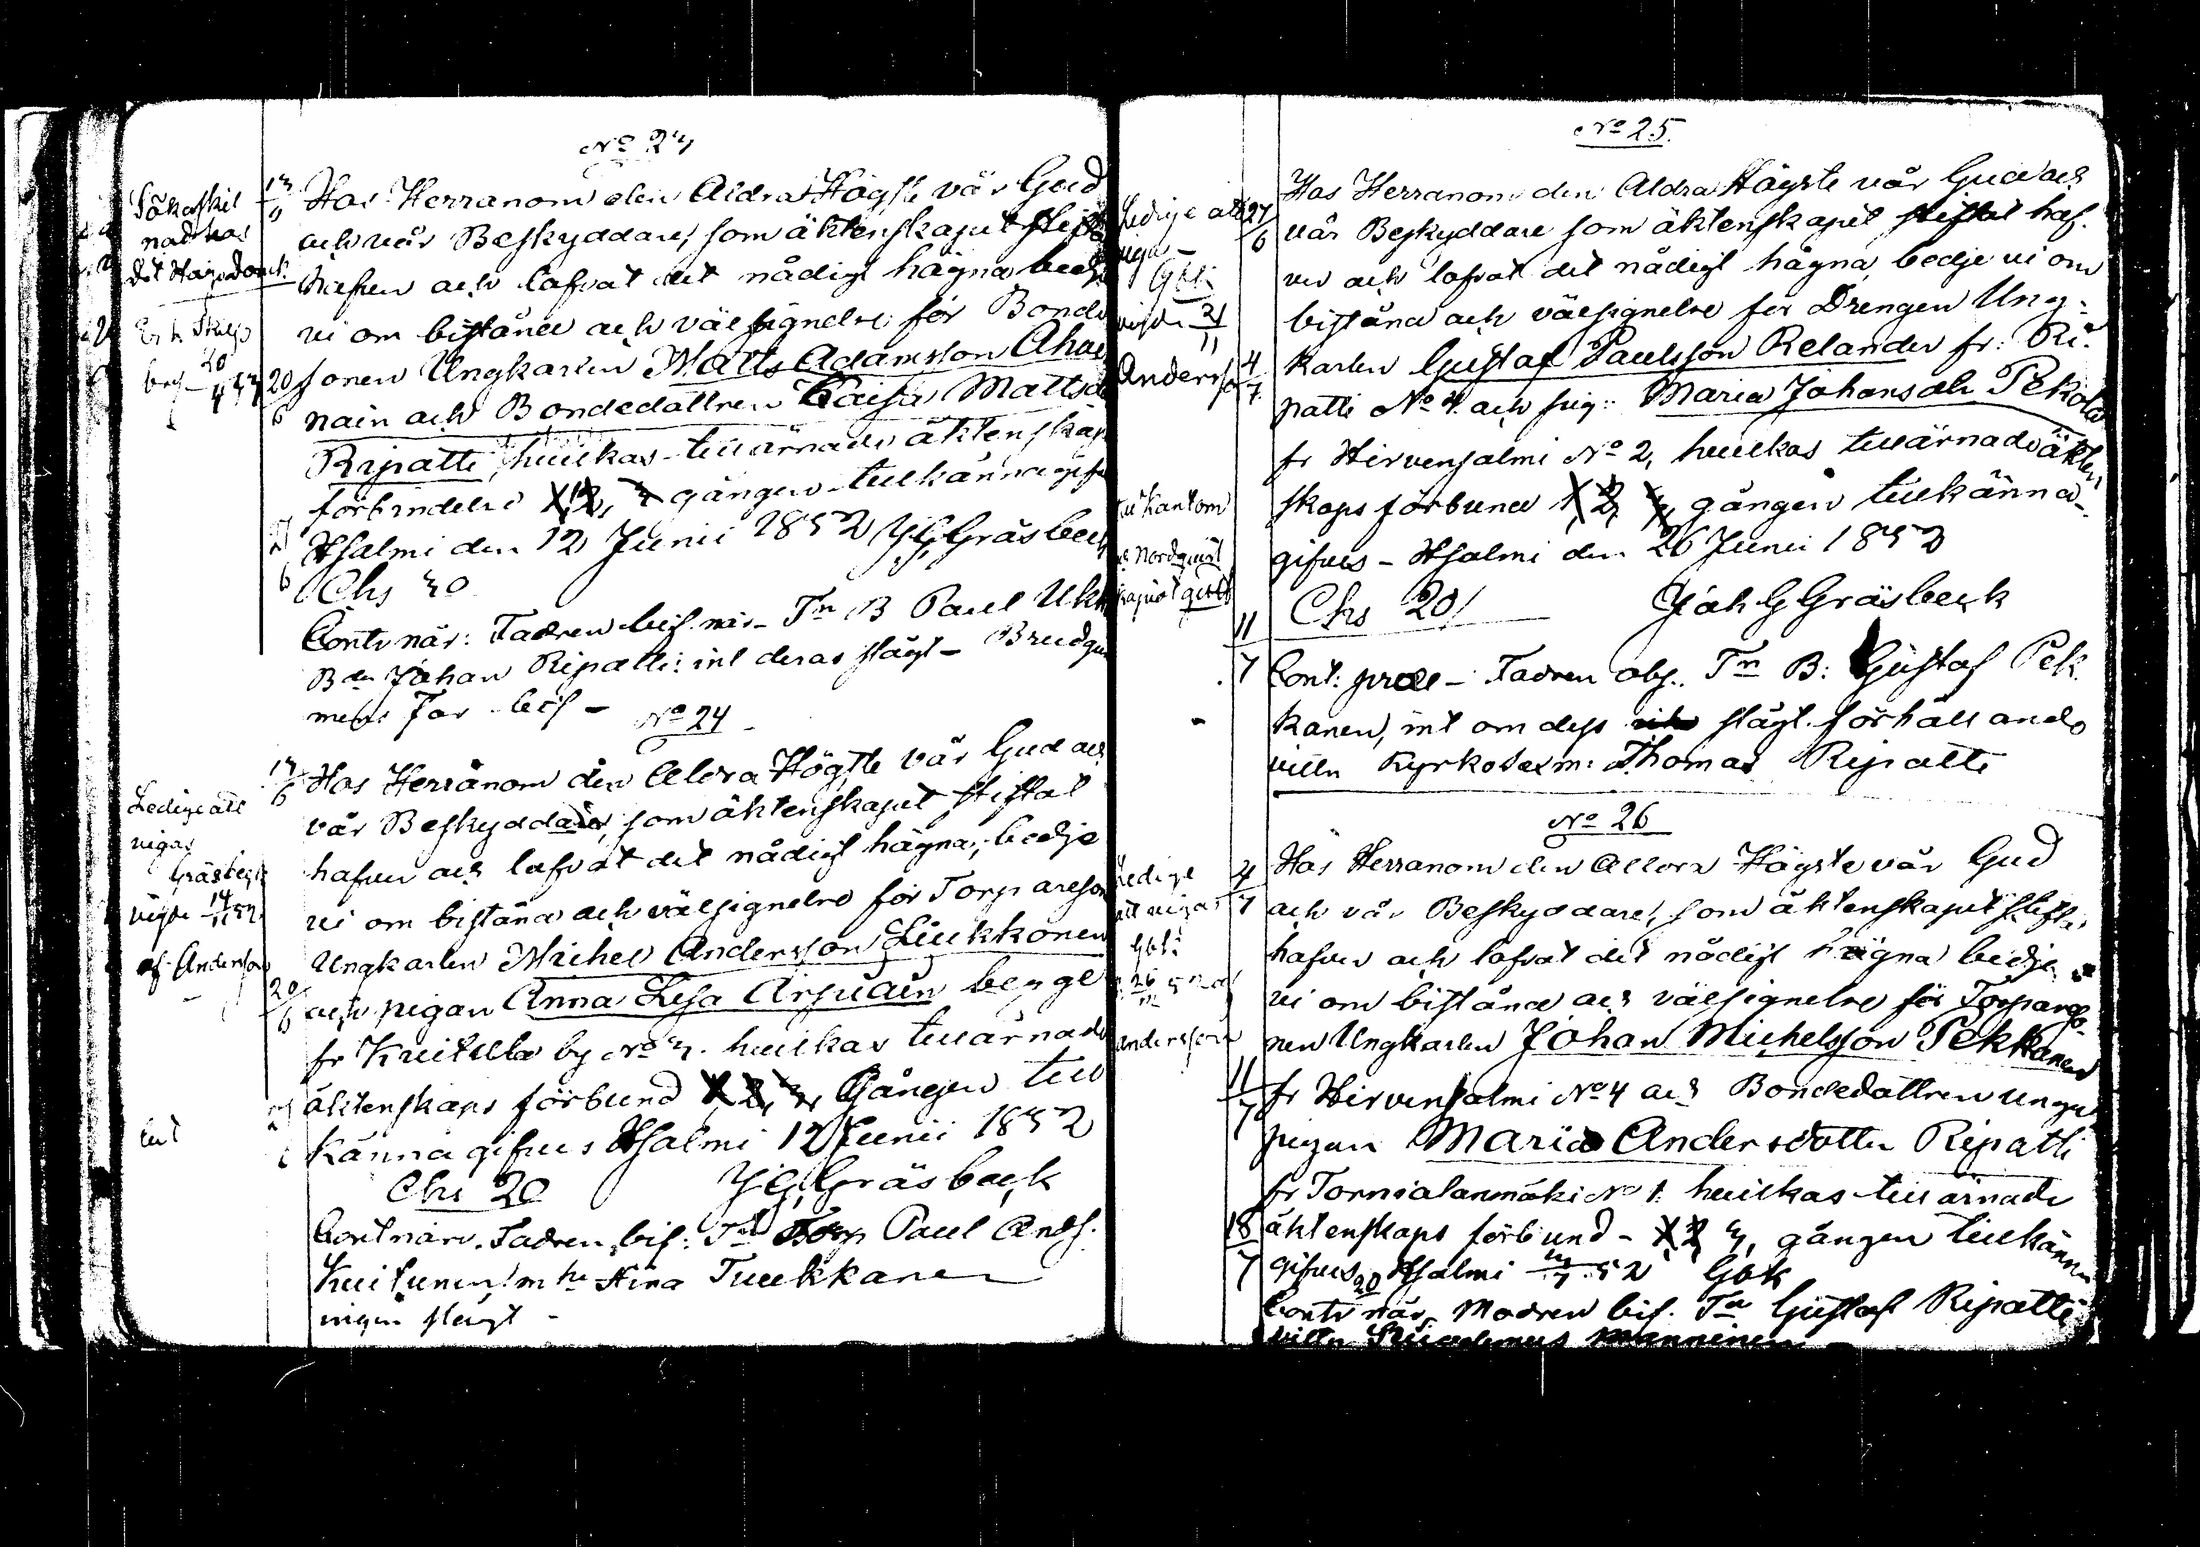 No 23
Söka skil
nad hos
det Hög. Domk.
13/6 Hos Herranom den Aldra Högste vår Gud
och vår Beskyddare, som äktenskapet stift
hafver och lofvat det nådigt hägna bedje
vi om bistånd och välsignelse för Bonde
20/6 sonen Ungkarlen Matts Adamsson Aho
nain och Bondedottren Caisa Mattsd
Ripatti, hvilkas tillärnade äktenskaps
förbindelse 1, 2, 3 gången tillkännagifves
Hsalmi den 12 Junii 1852 JGGräsbeck
Chs 30
Contr när: Fadren bif. när. Tn B Paul Ukk
Bdn Johan Ripatti: int deras slägt – Brudgu
mens Far bif –
No 24
Ledige att
vigas
Gräsbeck
vigde 14/11 52
af Anderson
13/6 Hos Herranom den Aldra Högste vår Gud och
vår Beskyddare, som äktenskapet stiftat
hafver och lofvat det nådigt hägna, bedje
vi om bistånd och välsignelse för Torpareson
Ungkarlen Michel Andersson Liukkonen
20/6 och pigan Anna Lisa Arpiain begge
fr Kuitula by No 3. hvilkas tillärnade
äktenskaps förbund 1, 2, 3, Gången till
känna gifves Hsalmi 12 Junii 1852
Chs 20 JGGräsbeck
Contr närv. Fadren bif: Tn Torp Paul Ands.
Kuitunen m hu Stina Tuukkanen
ingen slägt –
No 25.
Ledige att
vigas –
Gbk
vigde 21/11
Anderson
27/6 Hos Herranom den Aldra Högste vår Gud och
vår Beskyddare som äktenskapet stiftat haf-
ver och lofvat det nådigt hägna, bedje vi om
bistånd och välsignelse för Drengen Ung-
4/7 karlen Gustaf Paulsson Relander fr: Ri-
patti No 4. och pig: Maria Johansdr Pekola
fr Hirvensalmi No 2, hvilkas tillärnade äkten
skaps förbund 1, 2, 3, gången tillkänna-
gifves – Hsalmi den 26 Junii 1852
Chs 20/ Joh G Gräsbeck
11/7 Cont: præs – Fadren abs. Tn B: Gustaf Pek
kanen, int om dess slägt. förhållande
villn Kyrkovärn: Thomas Ripatti
No 26
Ledige
att vigas
Gbk:
26/12 52 af
Andersson
4/7 Hos Herranom den Aldra Högste vår Gud
och vår Beskyddare, som äktenskapet stiftat
hafver och lofvat det nådigt hägna bedje
vi om bistånd och välsignelse för Torpareso
nen Ungkarlen Johan Michelsson Pekkanen
11/7 fr Hirvensalmi No 4 och Bondedottren unga
pigan Maria Andersdotter Ripatti
fr Tornialanmäki No 1. hvilkas tillärnade
18/7 äktenskaps förbund – 1, 2, 3, gången tillkänna
gifves Hsalmi 3/7 52 Gbk
Contr när. Modren bif. Tn Gustaf Ripatti